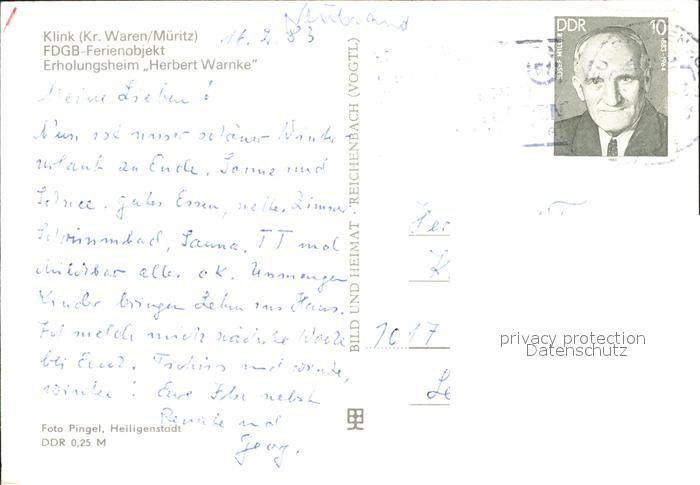 Neubrand
Klink (Kr. Waren/Müritz)
FDGB-Ferienobjekt
Erholungsheim „Herbert Warnke"
16.2.83
Meine Lieben!
Nun ist unser schöner Winter-
urlaub zu Ende. Sonne und
Schnee. gutes Essen, nettes Zimmer.
Schwimmbad, Sauna. TT und
alles ok. Unmengen
Kinder bringen Leben ins Haus.
melde mich nächste Woche
bei Euch. Tschüss und winke,
winke! Eure nebst
Renate und
Georg.
Foto Pingel, Heiligenstadt
DDR 0,25 M
BILD UND HEIMAT REICHENBACH (VOGTL)
DDR 10
JOSEF MILLER
1883-1964
Her
K.
1017
privacy protection
Datenschutz